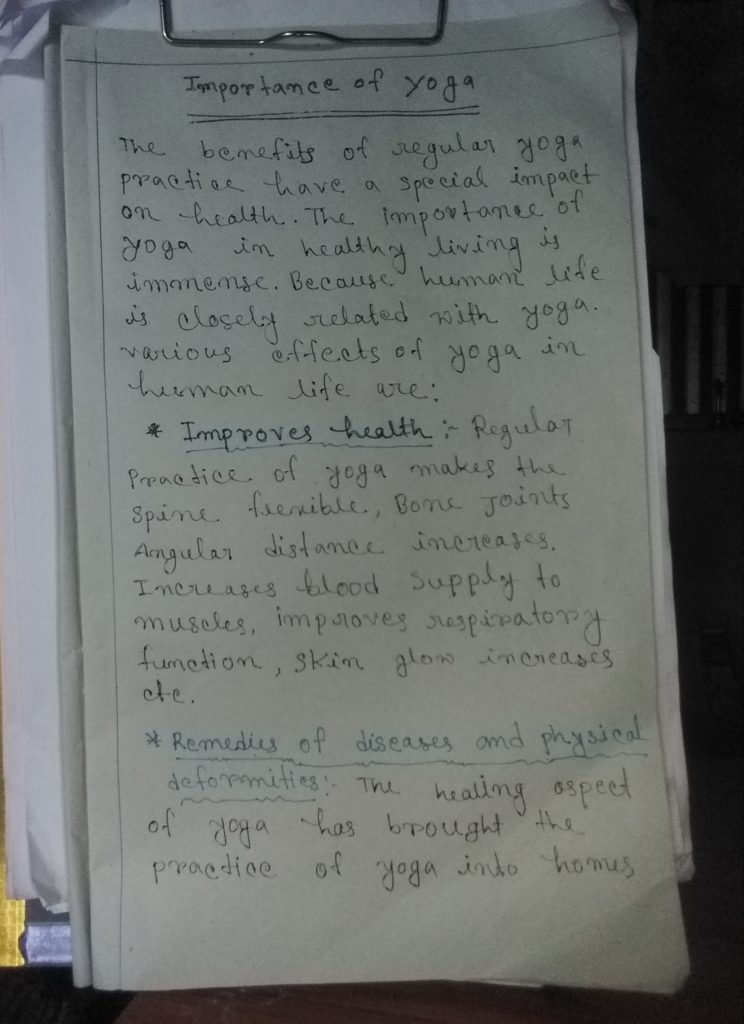 Importance of yoga
The benefits of regular yoga
practice have a special impact
on health. The importance of
yoga in healthy living is
immense. Because human life
is closely related with yoga.
various effects of yoga in
human life are:
* Improves health :- Regular
Practice of yoga makes the
Spine flexible, Bone Joints
Angular distance increases.
Increases blood supply to
muscles, improves respiratory
function, skin glow increases
etc.
* Remedies of diseases and physical
deformities:- The healing aspect
of yoga has brought the
practice of yoga into homes